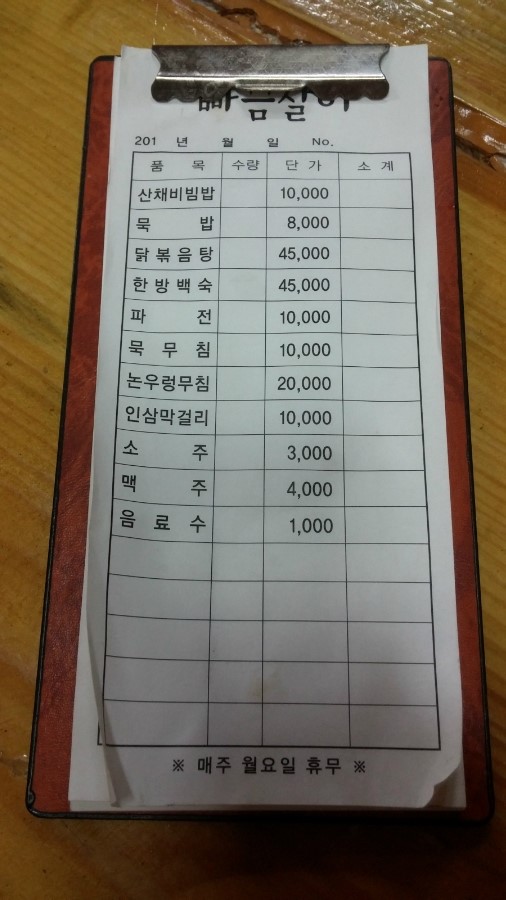 201 년 월 일 No.
품 목 수량 단 가 소 계
산채비빔밥 10,000
묵 밥 8,000
닭볶음탕 45,000
한방백숙 45,000
파 전 10,000
묵 무 침 10,000
논우렁무침 20,000
인삼막걸리 10,000
소 주 3,000
맥 주 4,000
음 료 수 1,000
※ 매주 월요일 휴무 ※